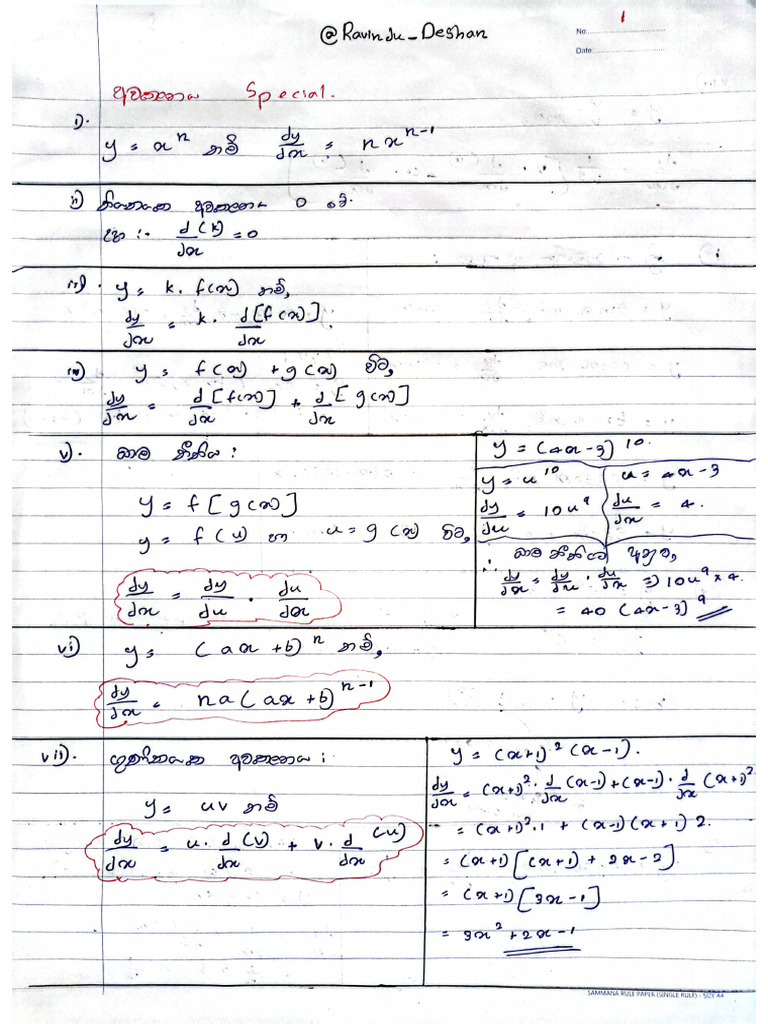 @Ravindu_Deshan
No: 1
Date:
අවකලනය Special.
i). y = x^n නම් dy/dx = nx^(n-1)
ii) නියතයක අවකලනය 0 වේ.
d(k)/dx = 0
iii). y = k. f(x) නම්,
dy/dx = k. d[f(x)]/dx
iv) y = f(x) + g(x) විට,
dy/dx = d/dx [f(x)] + d/dx [g(x)]
v). දාම නීතිය :
y = f[g(x)]
y = f(u) හා u = g(x) විට,
dy/dx = dy/du . du/dx
y = (4x-3)^10.
y = u^10
dy/du = 10u^9
u = 4x-3
du/dx = 4.
∴ දාම නීතියට අනුව,
dy/dx = dy/du . du/dx => 10u^9 x 4.
= 40(4x-3)^9
vi) y = (ax+b)^n නම්,
dy/dx = na(ax+b)^(n-1)
vii). ගුණිතයක අවකලනය :
y = uv නම්
dy/dx = u. d(v)/dx + v. d(u)/dx
y = (x+1)^2 (x-1).
dy/dx = (x+1)^2 . d/dx (x-1) + (x-1) . d/dx (x+1)^2
= (x+1)^2 . 1 + (x-1)(x+1) 2.
= (x+1)[(x+1) + 2x-2].
= (x+1)[3x-1]
= 3x^2+2x-1
SAMMANA RULE PAPER (SINGLE RULE) - SIZE A4